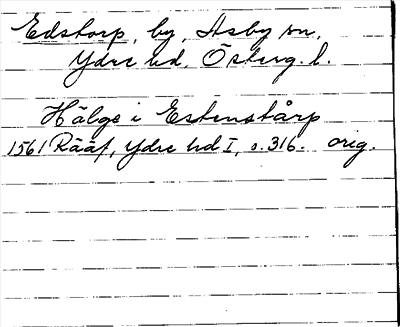 Edstorp, by, Asby sn,
Ydre hd, Österg. l.
Hälge i Estenstårp
1561 Rääf, Ydre hd I, s. 316. orig.